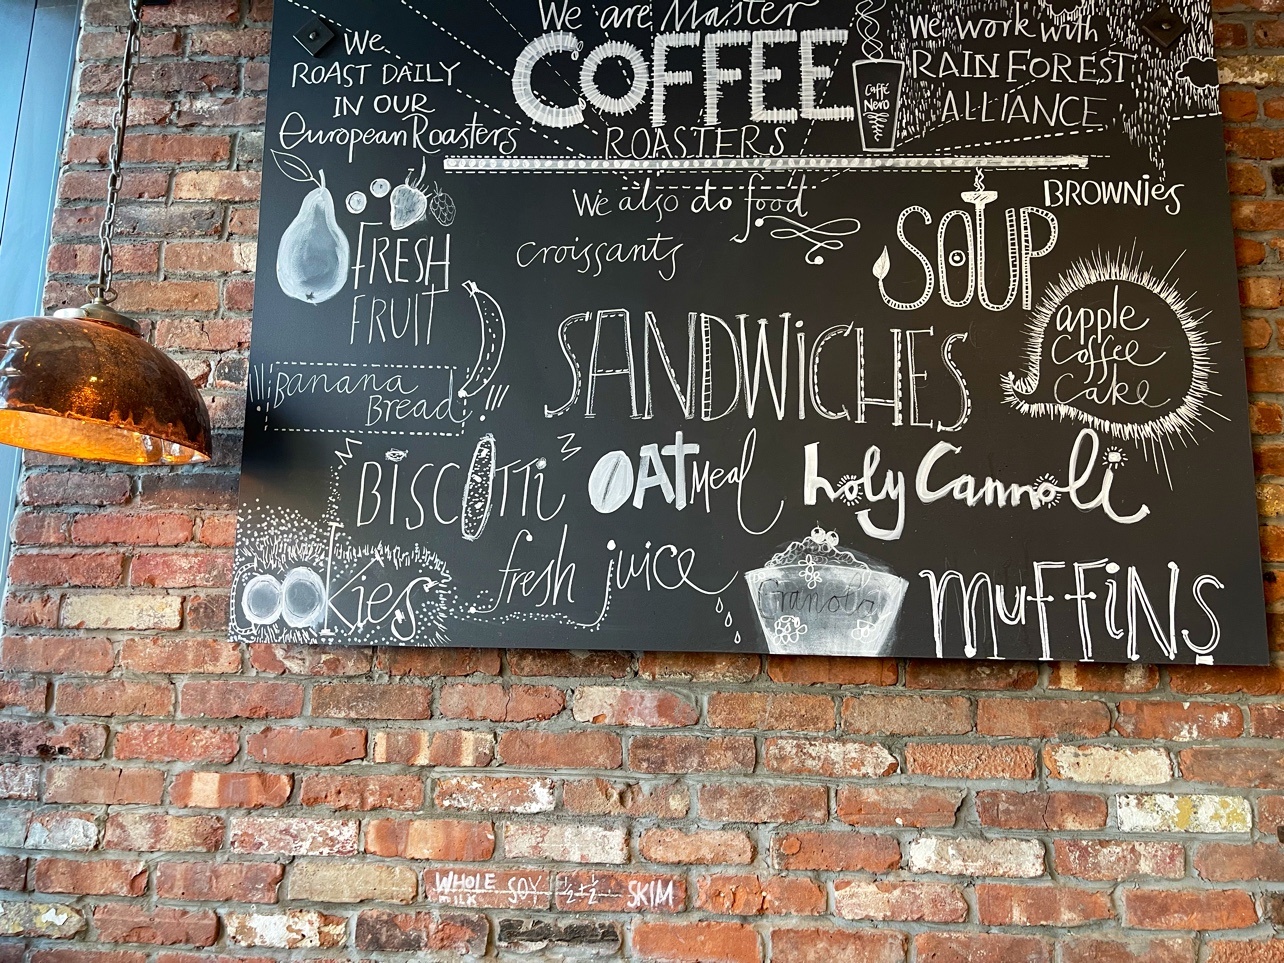 We are Master
COFFEE
ROASTERS
We
ROAST DAILY
IN OUR
European Roasters
Caffè
Nero
We work with
RAINFOREST
ALLIANCE
We also do food
BROWNIES
SOUP
croissants
FRESH
FRUIT
SANDWICHES
apple
coffee
cake
Banana
Bread
BISCOTTI
OATmeal
holy Cannoli
cookies
fresh juice
Granola
MUFFINS
WHOLE SOY ½+½ SKIM
MILK